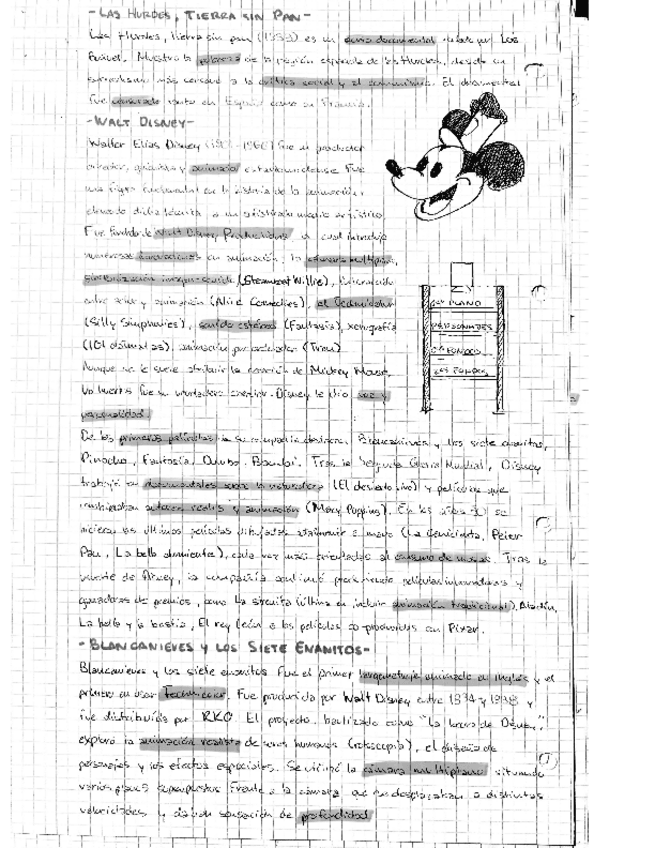 - LAS HURDES, TIERRA SIN PAN -
Las Hurdes, tierra sin pan (1933) es un documental por Luis
Buñuel. Muestra la pobreza de la región española de las Hurdes, desde un
surrealismo más cercano a la crítica social y el comunismo. El documental
fue censurado tanto en España como en Francia.
- WALT DISNEY -
Walter Elias Disney (1901-1966) fue un productor
creador, guionista y animador estadounidense. Fue
una figura en la historia de la animación
elevando dicha técnica a un medio artístico.
Fue fundador de Walt Disney Productions, el cual introdujo
numerosas innovaciones en animación: la cámara multiplano,
sincronización imagen-sonido (Steamboat Willie), interacción
entre actor y animación (Alice Comedies), el Technicolor
(Silly Simphonies), sonido estéreo (Fantasía), xerografía
(101 dálmatas), animación por ordenador (Tron)
Aunque se le suele atribuir la creación de Mickey Mouse,
Ub Iwerks fue su verdadero creador. Disney le dio voz y
personalidad.
1er PLANO
PERSONAJES
1er FONDO
2º FONDO
De las primeras películas de su compañía destacan, Blancanieves y los siete enanitos,
Pinocho, Fantasía, Dumbo, Bambi. Tras la Segunda Guerra Mundial, Disney
trabajó en documentales sobre la naturaleza (El desierto vivo) y películas que
combinaban actores reales y animación (Mary Poppins). En los años 50 se
hicieron las últimas películas dibujadas a mano (La Cenicienta, Peter
Pan, La bella durmiente), cada vez más orientadas al consumo de masas. Tras la
muerte de Disney, la compañía continuó produciendo películas innovadoras y
ganadoras de premios, como La sirenita (última en incluir animación tradicional), Aladín,
La bella y la bestia, El rey león o las películas co-producidas con Pixar.
- BLANCANIEVES Y LOS SIETE ENANITOS -
Blancanieves y los siete enanitos fue el primer largometraje animado en inglés y el
primero en usar Technicolor. Fue producida por Walt Disney entre 1934 y 1938 y
fue distribuida por RKO. El proyecto, bautizado como "La locura de Disney",
exploró la animación realista de seres humanos (rotoscopia), el diseño de
personajes y los efectos especiales. Se utilizó la cámara multiplano situando
varios planos superpuestos frente a la cámara que se desplazaban a distintas
velocidades y daban sensación de profundidad.